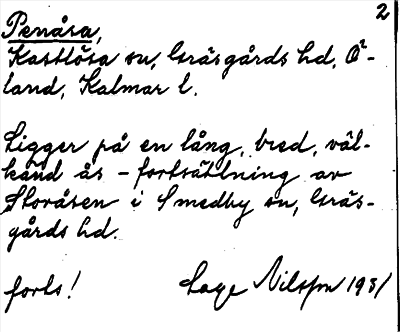 2
Penåsa,
Kastlösa sn, Gräsgårds hd, Ö-
land, Kalmar l.
Ligger på en lång, bred, väl-
känd ås - fortsättning av
Storåsen i Smedby sn, Gräs-
gårds hd.
forts! Lage Nilsson 1931